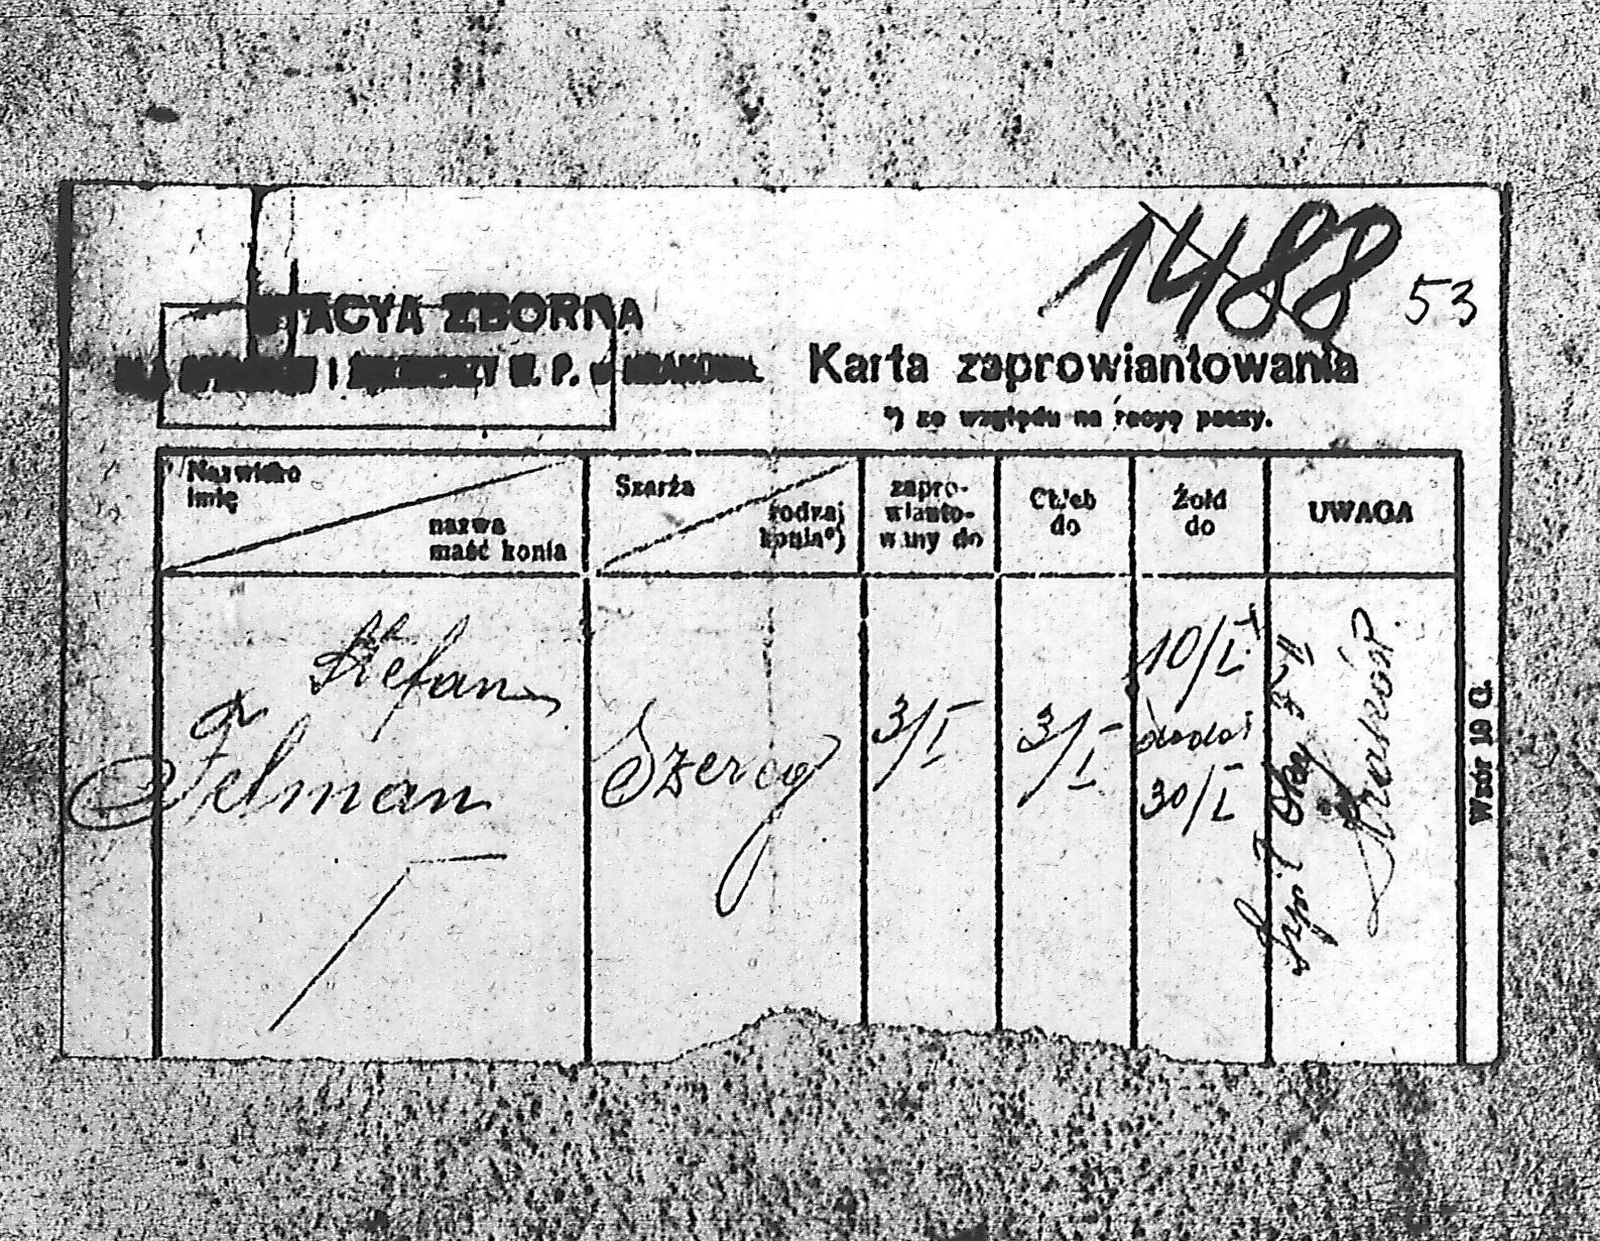 1488
53
STACYA ZBORNA
I W. P. w KRAKOWIE
Karta zaprowiantowania
*) ze względu na racyę paszy.
Nazwisko
imię
nazwa
maść konia
Szarża
rodzaj
konia*)
zapro-
wianto-
wany do
Chleb
do
Żołd
do
UWAGA
Stefan
Felman
Szereg
3/I
3/I
10/I
dodat
30/I
Wzór 10 C.